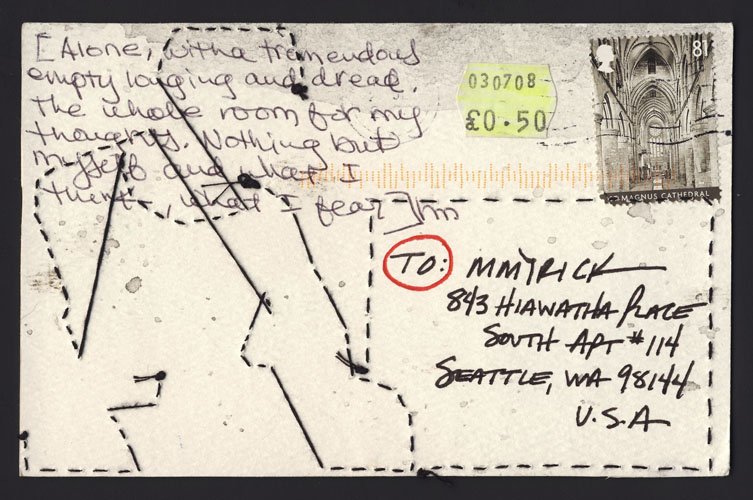 [Alone, with a tremendous
empty longing and dread.
The whole room for my
thoughts. Nothing but
myself and what I
think, what I fear Jim
030708
£0.50
81
MAGNUS CATHEDRAL
TO: MMYRICK
843 HIAWATHA PLACE
SOUTH APT #114
SEATTLE, WA 98144
U.S.A